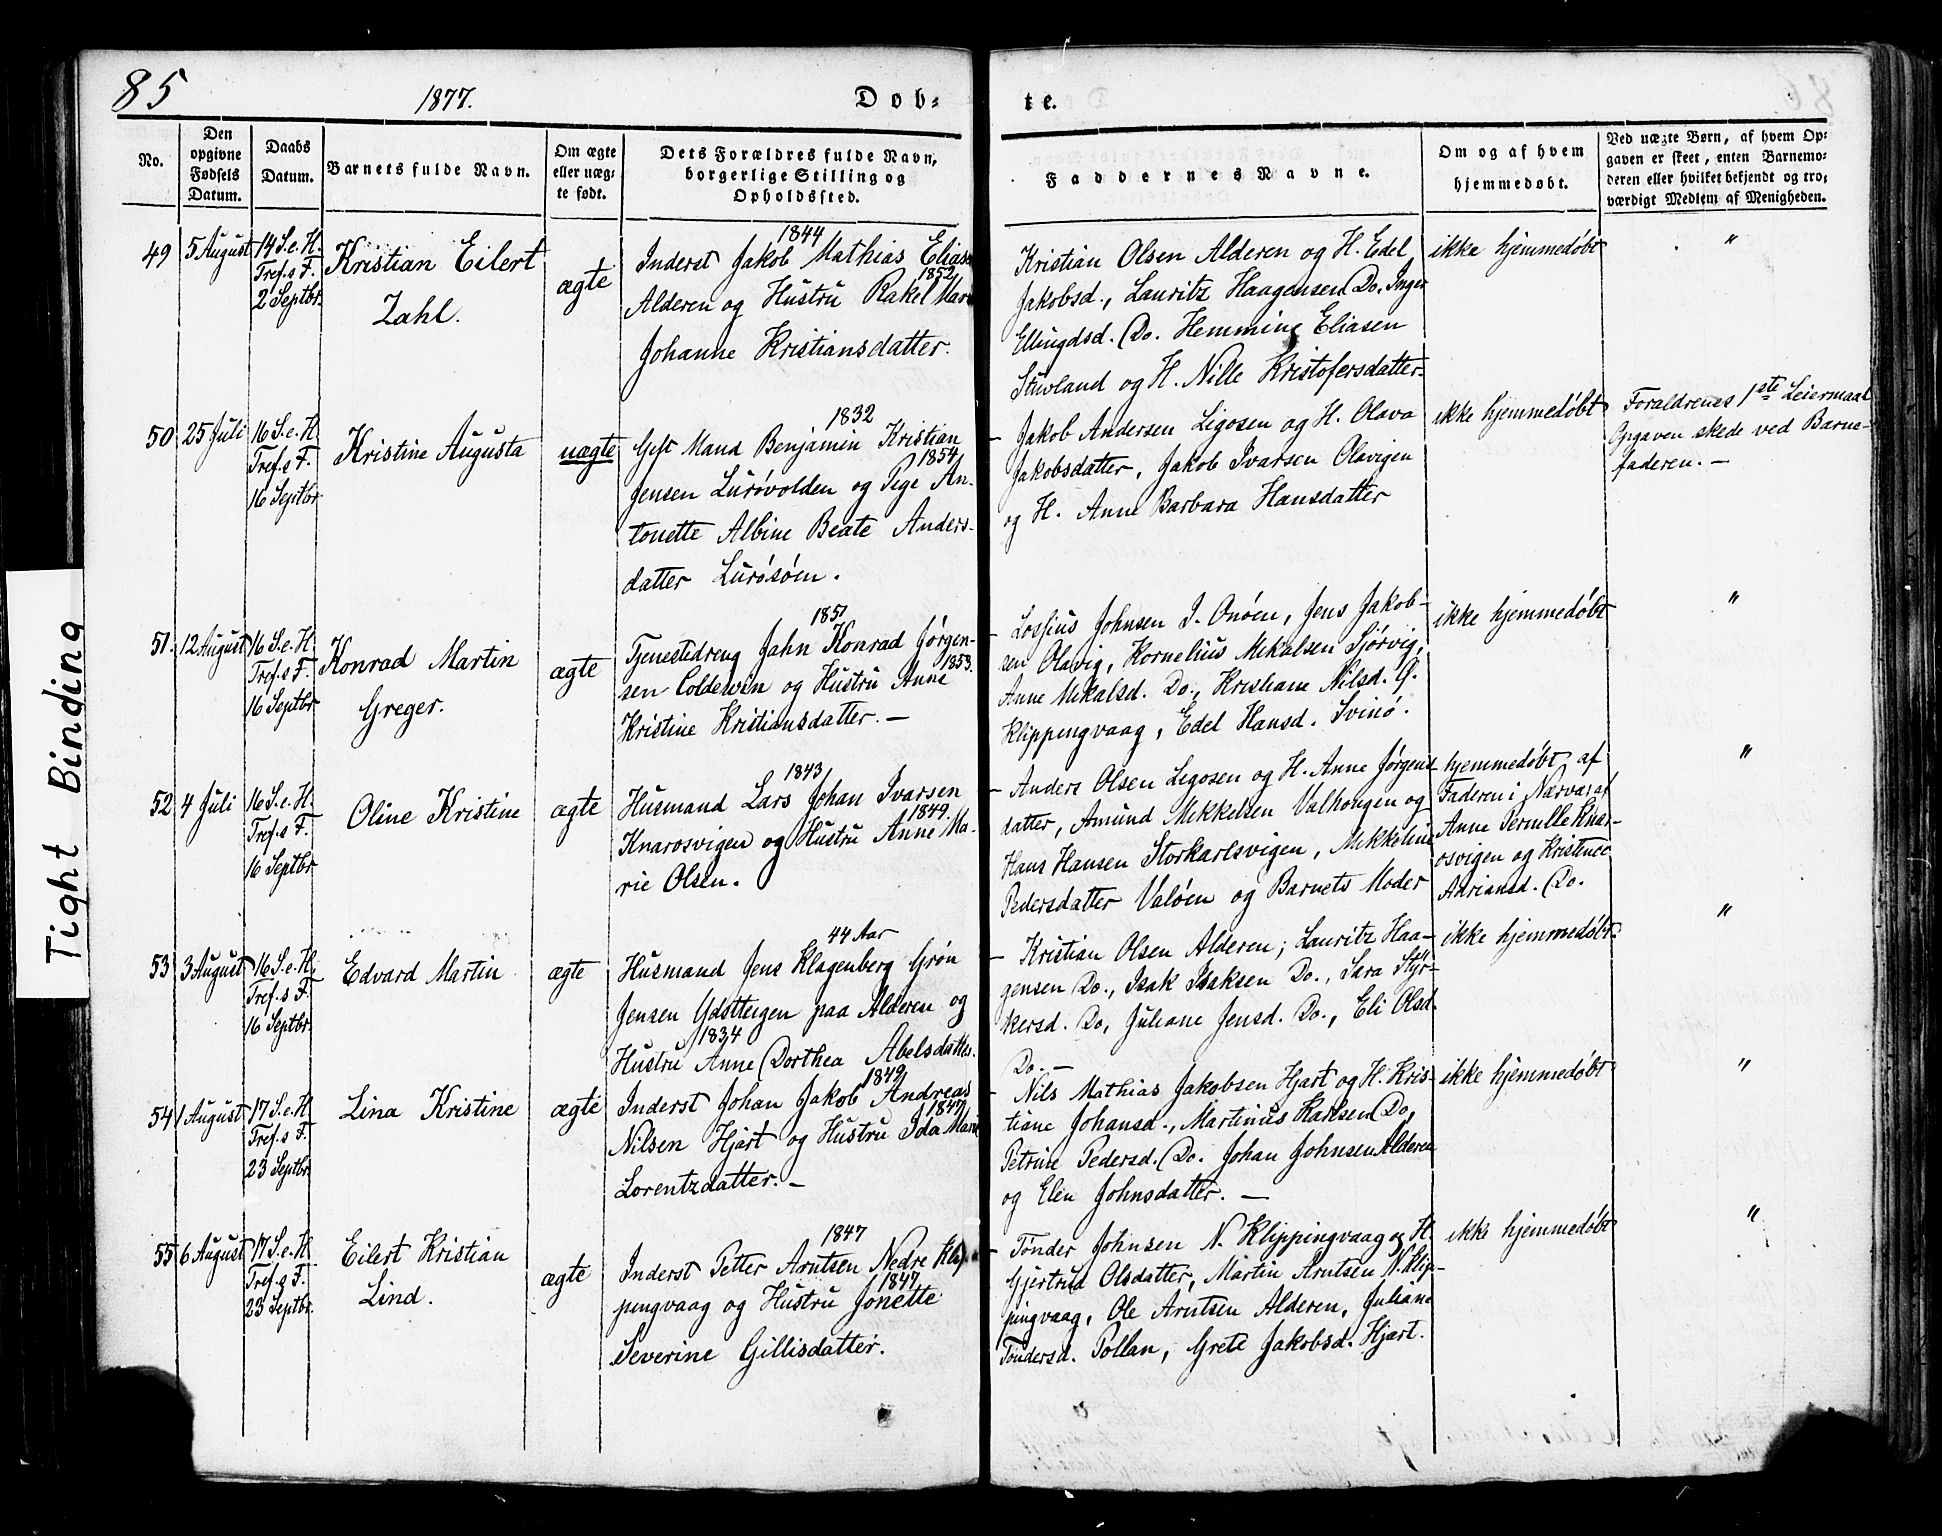 85
1877.
Døb-
te.
No.
Den
opgivne
Fødsels
Datum.
Daabs
Datum.
Barnets fulde Navn.
Om ægte
eller uæg-
te født.
Dets Forældres fulde Navn,
borgerlige Stilling og
Opholdssted.
Faddernes Navne.
Om og af hvem
hjemmedøbt.
Ved uægte Børn, af hvem Op-
gaven er skeet, enten Barnemo-
deren eller hvilket bekjendt og tro-
værdigt Medlem af Menigheden.
49
5 August
14 S. e. H.
Tref. s F.
2 Septbr.
Kristian Eilert
Zahl.
ægte
1844
Inderst Jakob Mathias Eliasen
1852
Alderen og Hustru Rakel Marie
Johanne Kristiansdatter.
Kristian Olsen Alderen og H. Edel
Jakobsd., Lauritz Haagensen Do. Inger
Ellingdsd. Do. Hemming Eliasen
Stuvland og H. Nille Kristofersdatter.
ikke hjemmedøbt
"
50
25 Juli
16 S. e. H.
Tref. s F.
16 Septbr
Kristine Augusta
uægte
1832
Gift Mand Benjamin Kristian
1854
Jensen Lurøvolden og Pige An-
tonette Albine Beate Anders-
datter Lurøsøen.
- Jakob Andersen Ligosen og H. Olava
Jakobsdatter, Jakob Ivarsen Olavigen
og H. Anne Barbara Hansdatter
ikke hjemmedøbt
Foraldrenes 1ste Leiermaal
Opgaven skede ved Barne-
faderen. -
51.
12 August
16 S. e. H.
Tref. s F.
16 Septbr
Konrad Martin
Greger.
ægte
1851
Tjenestedreng Jahn Konrad Jørgen-
1853.
sen Coldevin og Hustru Anne
Kristine Kristiansdatter. -
- Lossius Johnsen I. Onøen, Jens Jakob-
sen Olavig, Kornelius Mikalsen Sjørvig,
Anne Mikalsd. Do., Kristiane Nilsd. Ø.
Klippingvaag, Edel Hansd. Svinø.
ikke hjemmedøbt
"
52
4 Juli
16 S. e. H.
Tref. s F.
16 Septbr
Oline Kristine
ægte
1843
Husmand Lars Johan Ivarsen
1849.
Knarosvigen og Hustru Anne Ma-
rie Olsen.
- Anders Olsen Ligosen og H. Anne Jørgens
datter, Amund Mikkelsen Valhongen og
Hans Hansen Storkarlsvigen, Mikkeline
Pedersdatter Valøen og Barnets Moder
hjemmedøbt af
Faderen i Nærvær af
Anne Pernille Knar-
osvigen og Kristence
Adriansd. Do.
"
53
3 August
16 S. e. H.
Tref. s F.
16 Septbr.
Edvard Martin
ægte
44 Aar
Husmand Jens Klagenberg Grøn
Jensen Ydstteigen paa Alderen og
1834
Hustru Anne Dorthea Abelsdatter.
- Kristian Olsen Alderen; Lauritz Haa-
gensen Do., Isak Isaksen Do., Sara Styr-
kersd. Do, Juliane Jensd. Do., Eli Olsd.
Do. -
ikke hjemmedøbt.
"
54
1 August
17 S. e. H
Tref. s F.
23 Septbr
Lina Kristine
ægte
1849
Inderst Johan Jakob Andreas
1847
Nilsen Hjart og Hustru Ida Marie
Lorentzdatter. -
- Nils Mathias Jakobsen Hjart og H. Kris-
tiane Johansd., Martinus Karlsen Do,
Petrine Pedersd. Do. Johan Johnsen Alderen
og Elen Johnsdatter. -
ikke hjemmedøbt
"
55
6 August
17 S. e. H
Tref. s F.
23 Septbr.
Eilert Kristian
Lind.
ægte
1847
Inderst Petter Arntsen Nedre Klip
1847
pingvaag og Hustru Jonette
Severine Gillisdatter.
- Tønder Johnsen N. Klippingvaag og H.
Gjertrud Olsdatter, Martin Arntsen N. Klip-
pingvaag, Ole Arntsen Alderen, Juliane
Tøndersd. Pollan, Grete Jakobsd. Hjart.
ikke hjemmedøbt
"
Tight Binding